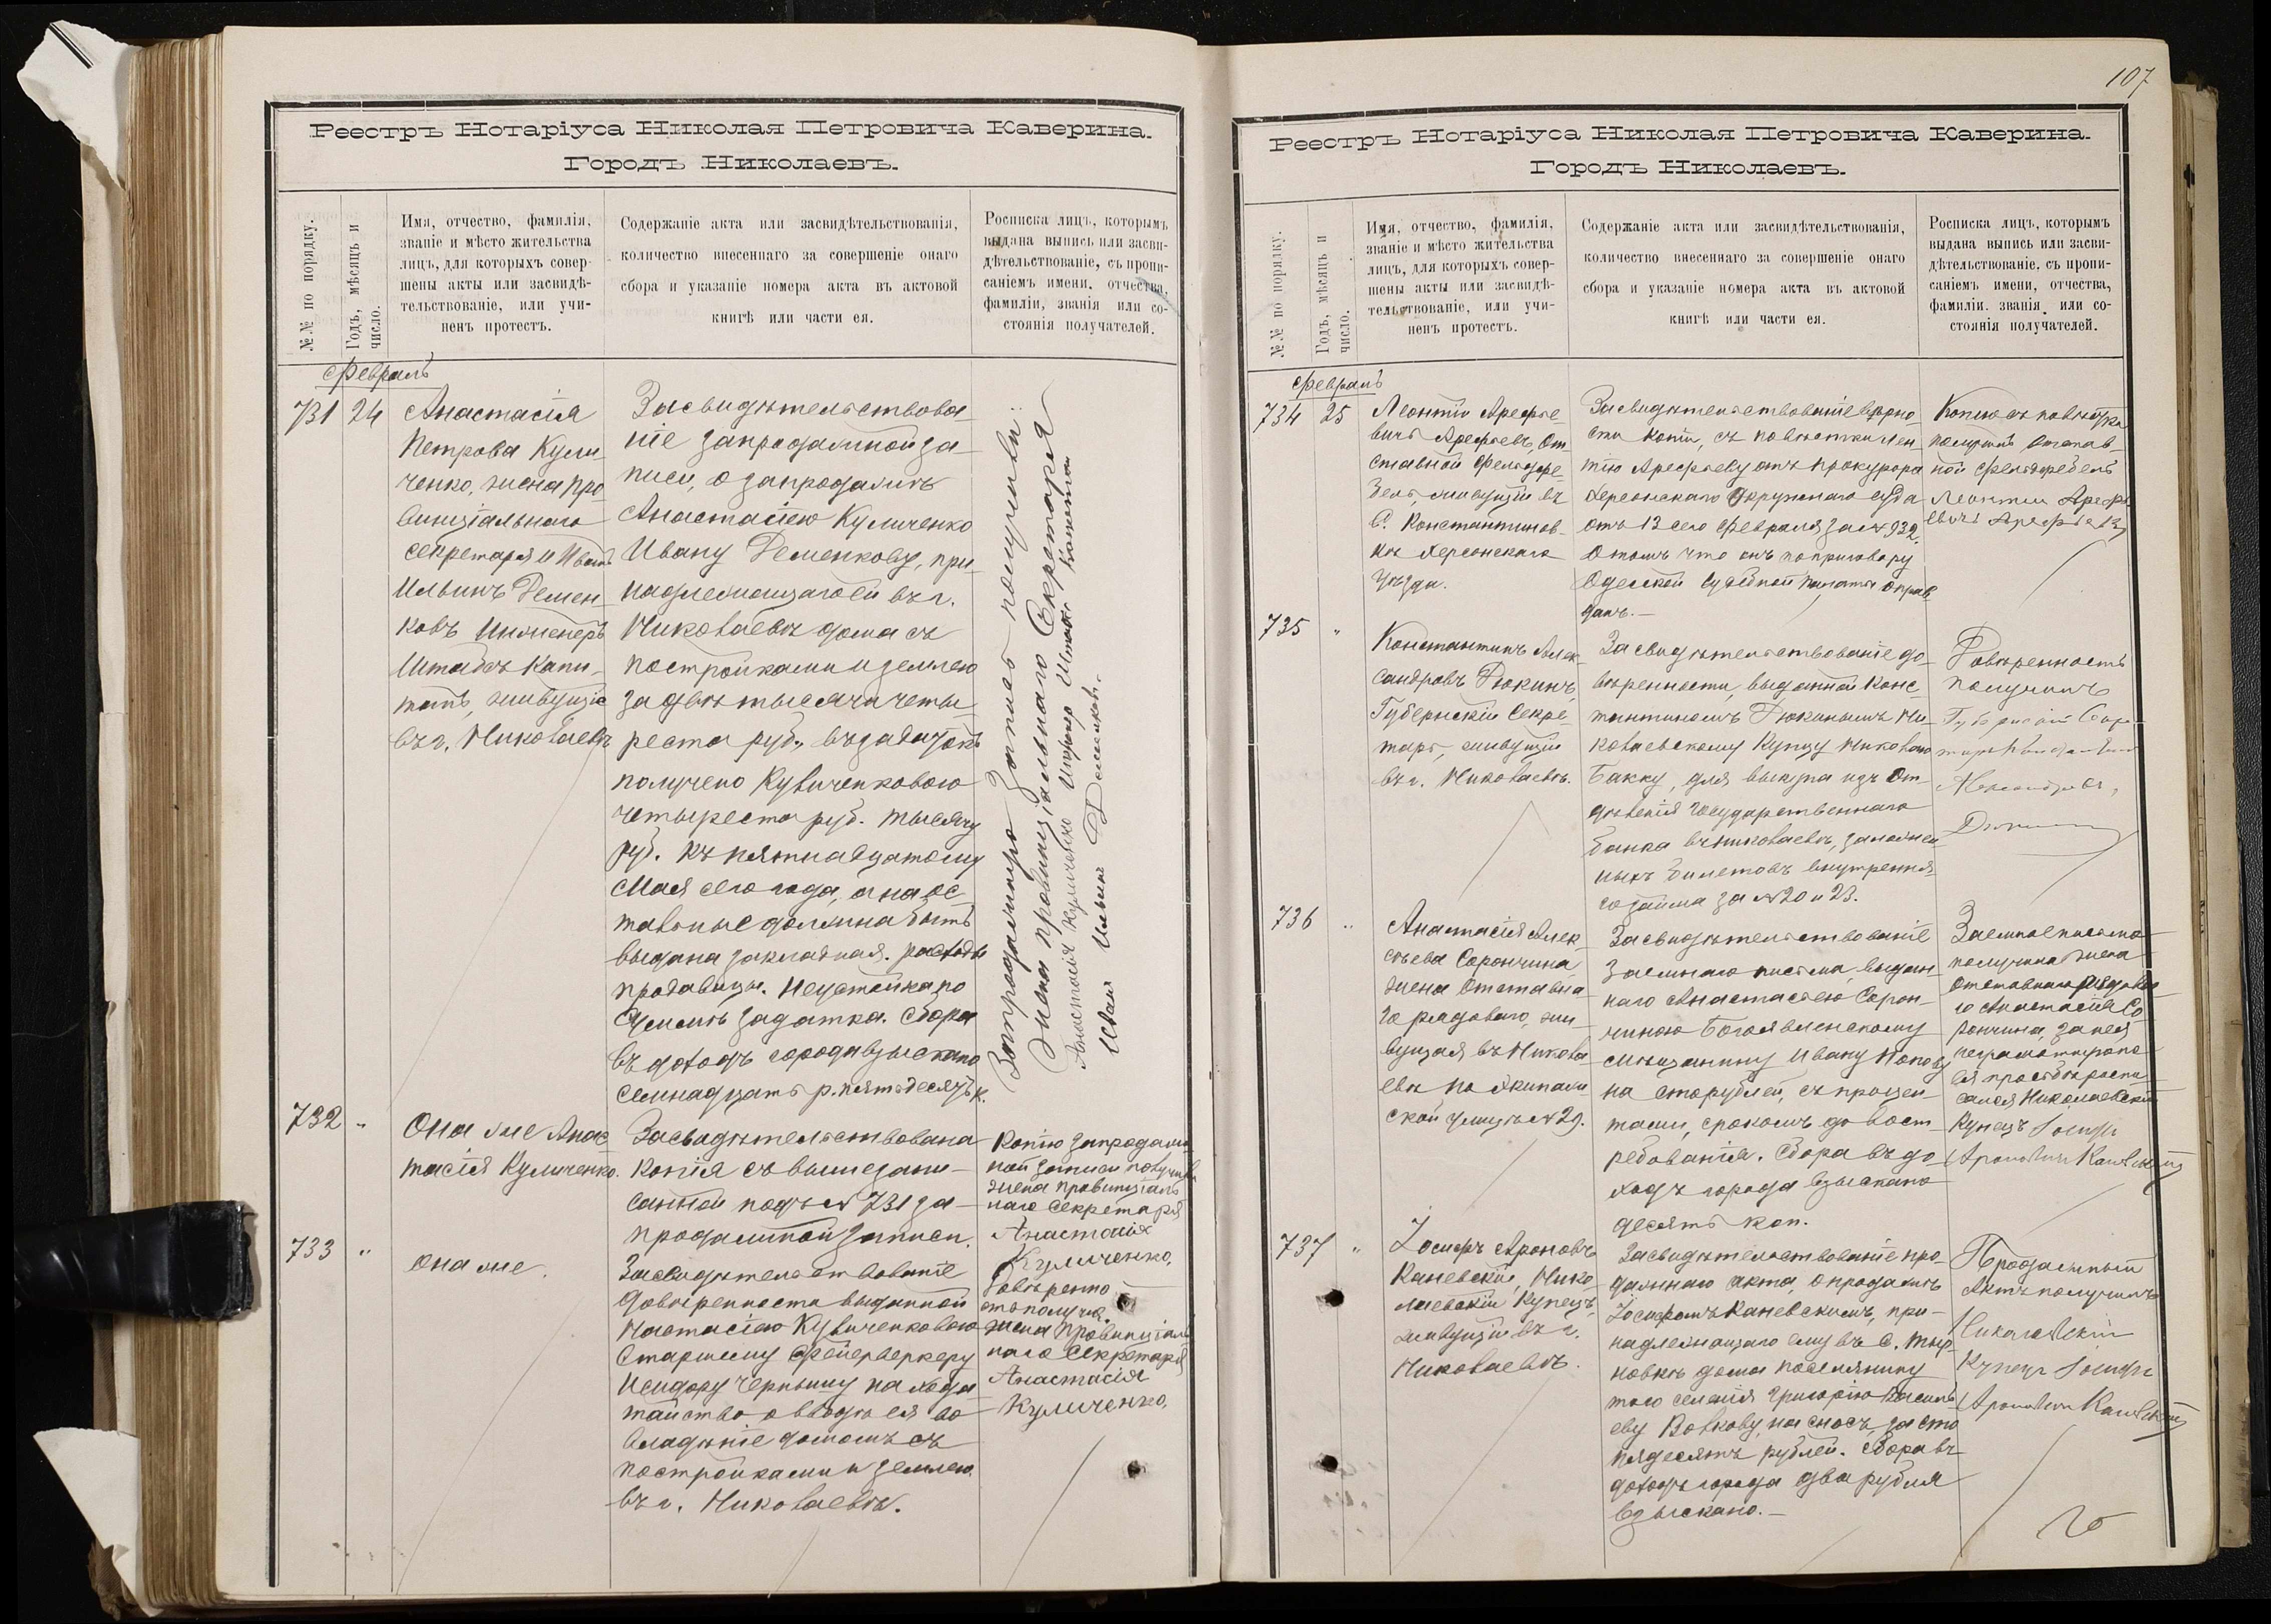 Реестръ Нотаріуса Николая Петровича Каверина.
Городъ Николаевъ.
№№ по порядку.
Годъ, мѣсяцъ и
число.
Имя, отчество, фамилія,
званіе и мѣсто жительства
лицъ, для которыхъ совер-
шены акты или засвидѣ-
тельствованіе, или учи-
ненъ протестъ.
Содержаніе акта или засвидѣтельствованія,
количество внесеннаго за совершеніе онаго
сбора и указаніе номера акта въ актовой
книгѣ или части ея.
Росписка лицъ, которымъ
выдана выпись или засви-
дѣтельствованіе, съ пропи-
саніемъ имени, отчества,
фамиліи, званія или со-
стоянія получателей.
Февраль
731 24
Анастасія
Петрова Кули-
ченко, жена про
винціальнаго
секретаря и Иванъ
Ильинъ Демен
ковъ Инженеръ
Штабсъ Капи-
танъ, живущіе
въ г. Николаевѣ
Засвидѣтельствова
ніе запродажной за
писи, о запродажѣ
Анастасіею Куличенко
Ивану Деменкову, при-
надлежащаго ей въ г.
Николаевѣ дома съ
постройками и землею
за двѣ тысячи четы
реста руб., въ задатокъ
получено Куличенковою
четыреста руб. тысячу
руб. къ пятнадцатому
Мая сего года, а на ос
тавшые должна быть
выдана закладная. расходы
продавицы. Неустойка по
суммѣ задатка. Сбора
въ доходъ города взыскано
семнадцать р. пятьдесятъ к.
Запродажную Запись получили:
Жена провинціальнаго Секретаря
Анастасія Куличенко Инженер Штабс Капитан
Иван Ильин Деменков.
732 "
Она же Анас
тасія Куличенко.
Засвидѣтельствована
копія съ вышезапи-
санной подъ № 731 за-
продажной записи.
Копію запродаж
ной записи получила
жена провинціаль
наго Секретаря
Анастасія
Куличенко.
733 "
она же.
Засвидѣтельствованіе
довѣренности выданной
Настасіею Куличенковою
Старшему Фейерверкеру
Исидору Чернышу на хода
тайство о вводѣ ея во
владѣніе домомъ съ
постройками и землею
въ г. Николаевѣ.
Довѣренно
сть получила
жена провинціаль
наго Секретаря
Анастасія
Куличенко.
107
Реестръ Нотаріуса Николая Петровича Каверина.
Городъ Николаевъ.
№№ по порядку.
Годъ, мѣсяцъ и
число.
Имя, отчество, фамилія,
званіе и мѣсто жительства
лицъ, для которыхъ совер-
шены акты или засвидѣ-
тельствованіе, или учи-
ненъ протестъ.
Содержаніе акта или засвидѣтельствованія,
количество внесеннаго за совершеніе онаго
сбора и указаніе номера акта въ актовой
книгѣ или части ея.
Росписка лицъ, которымъ
выдана выпись или засви-
дѣтельствованіе, съ пропи-
саніемъ имени, отчества,
фамиліи, званія или со-
стоянія получателей.
Февраль
734 25
Леонтій Арефье
вичъ Арефьевъ, От
ставной Фельдфе
бель живущій въ
С. Константинов
кѣ Херсонскаго
уѣзда.
Засвидѣтельствованіе вѣрно
сти копіи, съ повѣстки Леон
тію Арефьеву отъ прокурора
Херсонскаго Окружнаго суда
отъ 13 сего Февраля за № 932.
о томъ что онъ по приговору
Одесской Судебной палаты оправ
данъ.—
Копію съ повѣстки
получилъ Отстав
ной Фельдфебель
Леонтій Арефь
евичъ Арефьевъ
735 "
Константинъ Алек
сандровъ Дюкинъ,
Губернскій Секре
тарь, живущій
въ г. Николаевѣ.
Засвидѣтельствованіе до
вѣренности, выданной Конс
тантиномъ Дюкинымъ Ни-
колаевскому Купцу Николаю
Бакку, для выкупа изъ От
дѣленія Государственнаго
банка въ Николаевѣ, заложен
ныхъ билетовъ внутрення
го займа за № 20 и 23.
Довѣренность
получилъ
Губернскій Секре
тарь Константин
Александров,
Дюкин
736 "
Анастасія Алек
сѣева Сорончина
жена Отставна
го рядоваго, жи
вущая въ Никола
евѣ по
ской улицѣ № 29.
Засвидѣтельствованіе
заемнаго письма, выдан
наго Анастасіею Сорон-
чиною Богоявленскому
мѣщанину Ивану Попову
на сто рублей, съ процен
тами, срокомъ до вост-
ребованія. Сбора въ до
ходъ города взыскано
десять коп.
Заемное письмо
получила жена
отставнаго рядова
го Анастасія Со
рончина, за нея
неграмотную по
ея просьбѣ роспи
сался Николаевскій
Купецъ Іосифъ
Ароновичъ Каневскій
737 "
Іосифъ Ароновъ
Каневскій, Нико
лаевскій Купецъ,
живущій въ г.
Николаевѣ.
Засвидѣтельствованіе про-
дажнаго акта, о продажѣ
Іосифомъ Каневскимъ, при-
надлежащаго ему въ С. Тер
новкѣ дома поселянину
того селенія Григорію Василь
еву Волкову, на сносъ, за сто
пядесятъ рублей. Сбора въ
доходъ города два рубля
взыскано.—
Продажный
Актъ получилъ
Николаевскій
Купецъ Іосифъ
Ароновичъ Каневскій